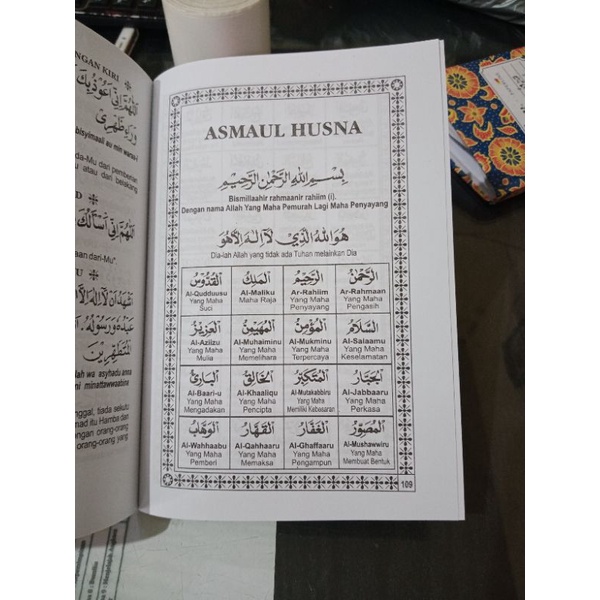 NGAN KIRI
اَللّٰهُمَّ اِنِّي اَعُوْذُ بِكَ
وَرَاءِ ظَهْرِيْ
bisyimaalii au min waraa-i
da-Mu dari pemberian
u atau dari belakang
D
اَللّٰهُمَّ اِنِّي اَسْأَلُكَ
aan dari-Mu"
U
اَشْهَدُ اَنْ لَا اِلٰهَ اِلَّا اللّٰهُ
عَبْدُهُ وَرَسُوْلُهُ
الْمُتَطَهِّرِيْنَ
lah wa asyhadu anna
ni minattawwaabiina
nggal, tiada sekutu
mad itu Hamba dan
ongan orang-orang
orang-orang yang
ASMAUL HUSNA
بِسْمِ اللهِ الرَّحْمٰنِ الرَّحِيْمِ
Bismillaahir rahmaanir rahiim (i).
Dengan nama Allah Yang Maha Pemurah Lagi Maha Penyayang
هُوَ اللهُ الَّذِيْ لَآ اِلٰهَ اِلَّا هُوَ
Dia-lah Allah yang tidak ada Tuhan melainkan Dia
الرَّحْمٰنُ
Ar-Rahmaan
Yang Maha
Pengasih
الرَّحِيْمُ
Ar-Rahiim
Yang Maha
Penyayang
الْمَلِكُ
Al-Maliku
Maha Raja
الْقُدُّوْسُ
Al-Qudduusu
Yang Maha
Suci
السَّلَامُ
Al-Salaamu
Yang Maha
Keselamatan
الْمُؤْمِنُ
Al-Mukminu
Yang Maha
Terpercaya
الْمُهَيْمِنُ
Al-Muhaiminu
Yang Maha
Memelihara
الْعَزِيْزُ
Al-Aziizu
Yang Maha
Mulia
الْجَبَّارُ
Al-Jabbaaru
Yang Maha
Perkasa
الْمُتَكَبِّرُ
Al-Mutakabbiru
Yang Maha
Memiliki Kebesaran
الْخَالِقُ
Al-Khaaliqu
Yang Maha
Pencipta
الْبَارِئُ
Al-Baari-u
Yang Maha
Mengadakan
الْمُصَوِّرُ
Al-Mushawwiru
Yang Maha
Membuat Bentuk
الْغَفَّارُ
Al-Ghaffaaru
Yang Maha
Pengampun
الْقَهَّارُ
Al-Qahhaaru
Yang Maha
Memaksa
الْوَهَّابُ
Al-Wahhaabu
Yang Maha
Pemberi
109